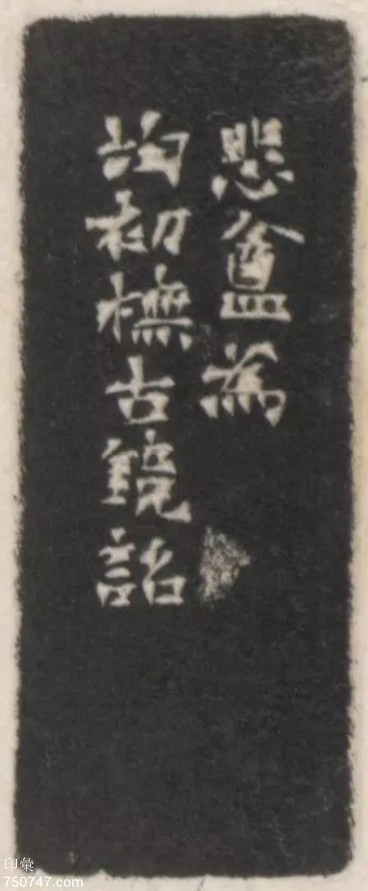 悲盦為
均初橅古鏡詺
印彙
750747.com